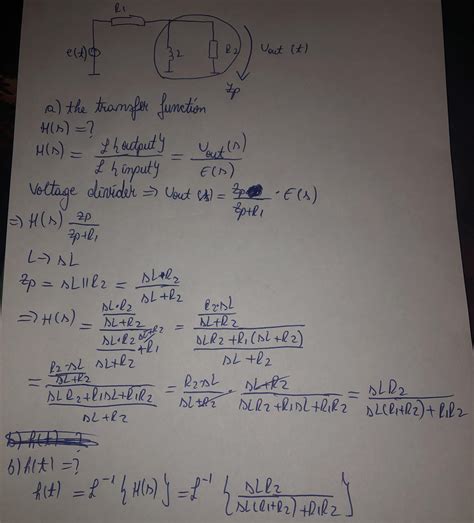 R1
e(t)
L
R2
Vout (t)
Zp
a) the transfer function
H(s) = ?
H(s) = L{output} / L{input} = Vout(s) / E(s)
Voltage divider => Vout (s) = Zp / (Zp+R1) · E(s)
=> H(s) Zp / (Zp+R1)
L -> sL
Zp = sL || R2 = sL·R2 / (sL+R2)
=> H(s) = (sL·R2 / (sL+R2)) / (sL·R2 / (sL+R2) + R1) = (R2·sL / (sL+R2)) / ((sLR2 + R1(sL+R2)) / (sL+R2))
= (R2·sL / (sL+R2)) / ((sLR2 + R1sL + R1R2) / (sL+R2)) = R2·sL / (sL+R2) · (sL+R2) / (sLR2 + R1sL + R1R2) = sLR2 / (sL(R1+R2) + R1R2)
b) h(t) = ?
b) h(t) = ?
h(t) = L⁻¹ {H(s)} = L⁻¹ { sLR2 / (sL(R1+R2) + R1R2) }